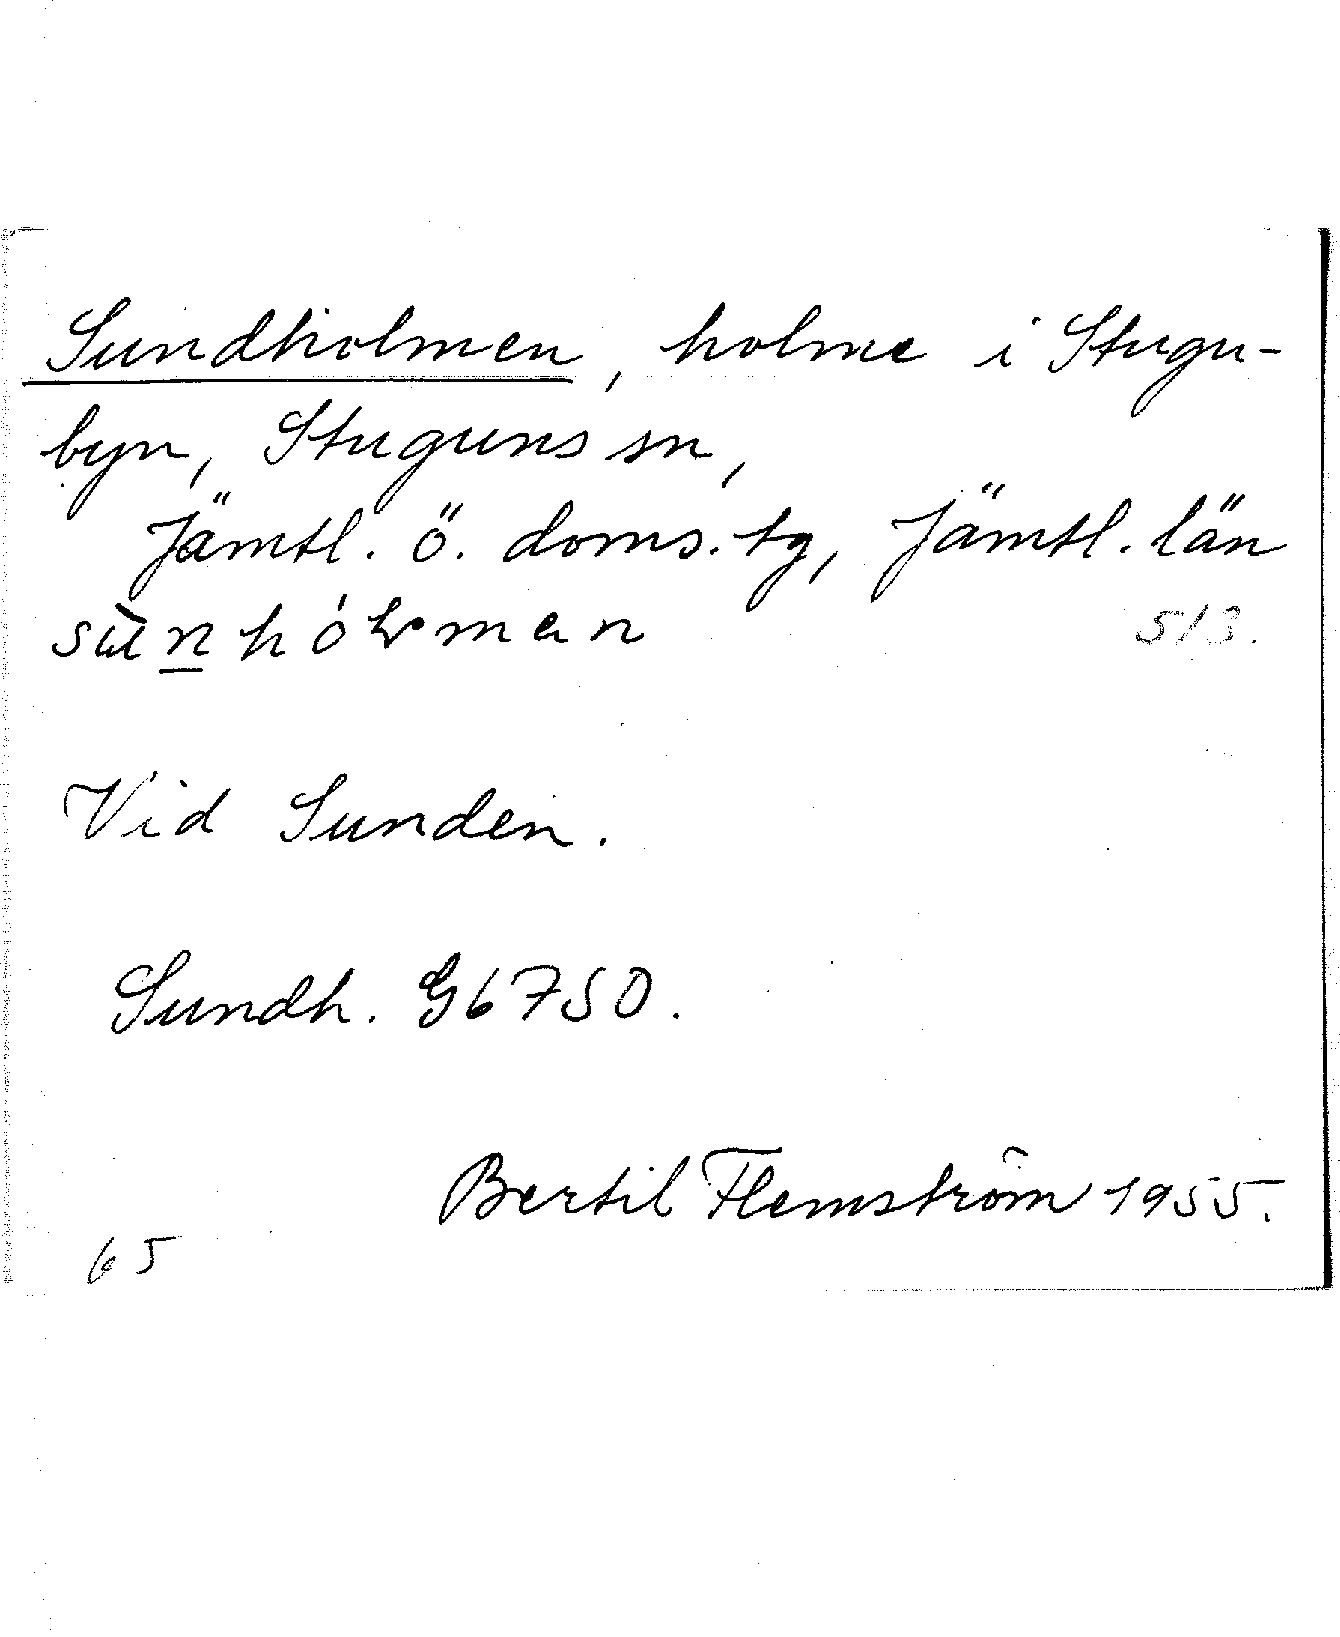 Sundholmen, holme i Stugu-
byn, Stuguns sn,
Jämtl. ö. doms. tg, Jämtl. län
513.
Vid Sunden.
Sundh. G6750.
Bertil Flemström 1955.
65